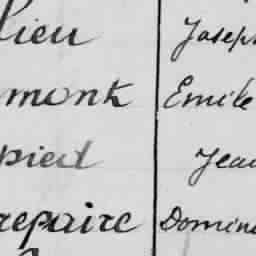 lieu Joseph
mont Emile
pied Jean
repaire Domin